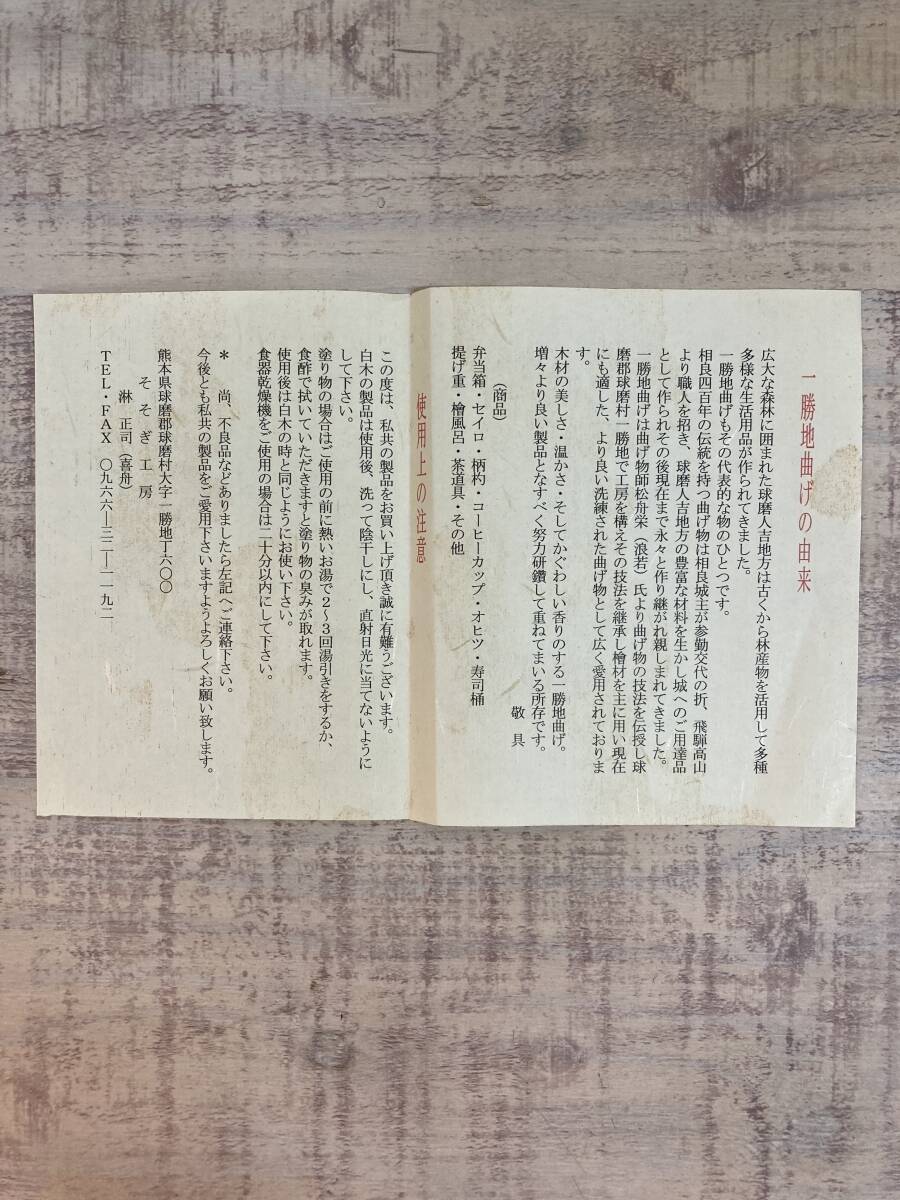 一勝地曲げの由来
広大な森林に囲まれた球磨人吉地方は古くから林産物を活用して多種
多様な生活用品が作られてきました。
一勝地曲げもその代表的な物のひとつです。
相良四百年の伝統を持つ曲げ物は相良城主が参勤交代の折、飛騨高山
より職人を招き、球磨人吉地方の豊富な材料を生かし城へのご用達品
として作られその後現在まで永々と作り継がれ親しまれてきました。
一勝地曲げは曲げ物師松舟栄（浪若）氏より曲げ物の技法を伝授し球
磨郡球磨村一勝地で工房を構えその技法を継承し檜材を主に用い現在
にも適した、より良い洗練された曲げ物として広く愛用されておりま
す。
木材の美しさ・温かさ・そしてかぐわしい香りのする一勝地曲げ。
増々より良い製品となすべく努力研鑽して重ねてまいる所存です。
敬具
（商品）
弁当箱・セイロ・柄杓・コーヒーカップ・オヒツ・寿司桶
提げ重・檜風呂・茶道具・その他
使用上の注意
この度は、私共の製品をお買い上げ頂き誠に有難うございます。
白木の製品は使用後、洗って陰干しにし、直射日光に当てないように
して下さい。
塗り物の場合はご使用の前に熱いお湯で２～３回湯引きをするか、
食酢で拭いていただきますと塗り物の臭みが取れます。
使用後は白木の時と同じようにお使い下さい。
食器乾燥機をご使用の場合は二十分以内にして下さい。
＊　尚、不良品などありましたら左記へご連絡下さい。
今後とも私共の製品をご愛用下さいますようよろしくお願い致します。
熊本県球磨郡球磨村大字一勝地丁六〇〇
そそぎ工房
淋　正司（喜舟）
ＴＥＬ・ＦＡＸ　〇九六六―三二―一一九二